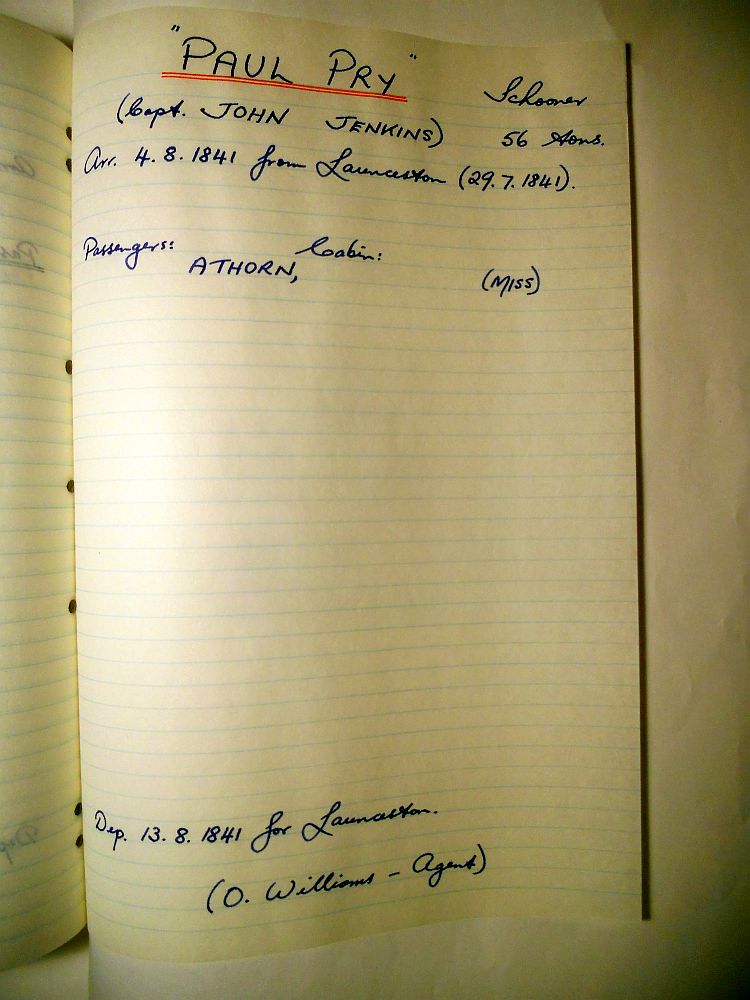 "PAUL PRY" Schooner
(Capt. JOHN JENKINS) 56 tons.
Arr. 4.8.1841 from Launceston (29.7.1841).
Passengers: Cabin:
ATHORN, (MISS)
Dep. 13.8.1841 for Launceston.
(O. Williams - Agent)